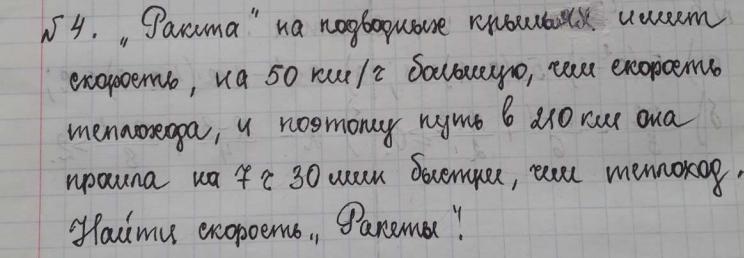 № 4. „Ракета" на подводных крыльях имеет
скорость, на 50 км/ч большую, чем скорость
теплохода, и поэтому путь в 210 км она
прошла на 7 ч 30 мин быстрее, чем теплоход.
Найти скорость „Ракеты"!